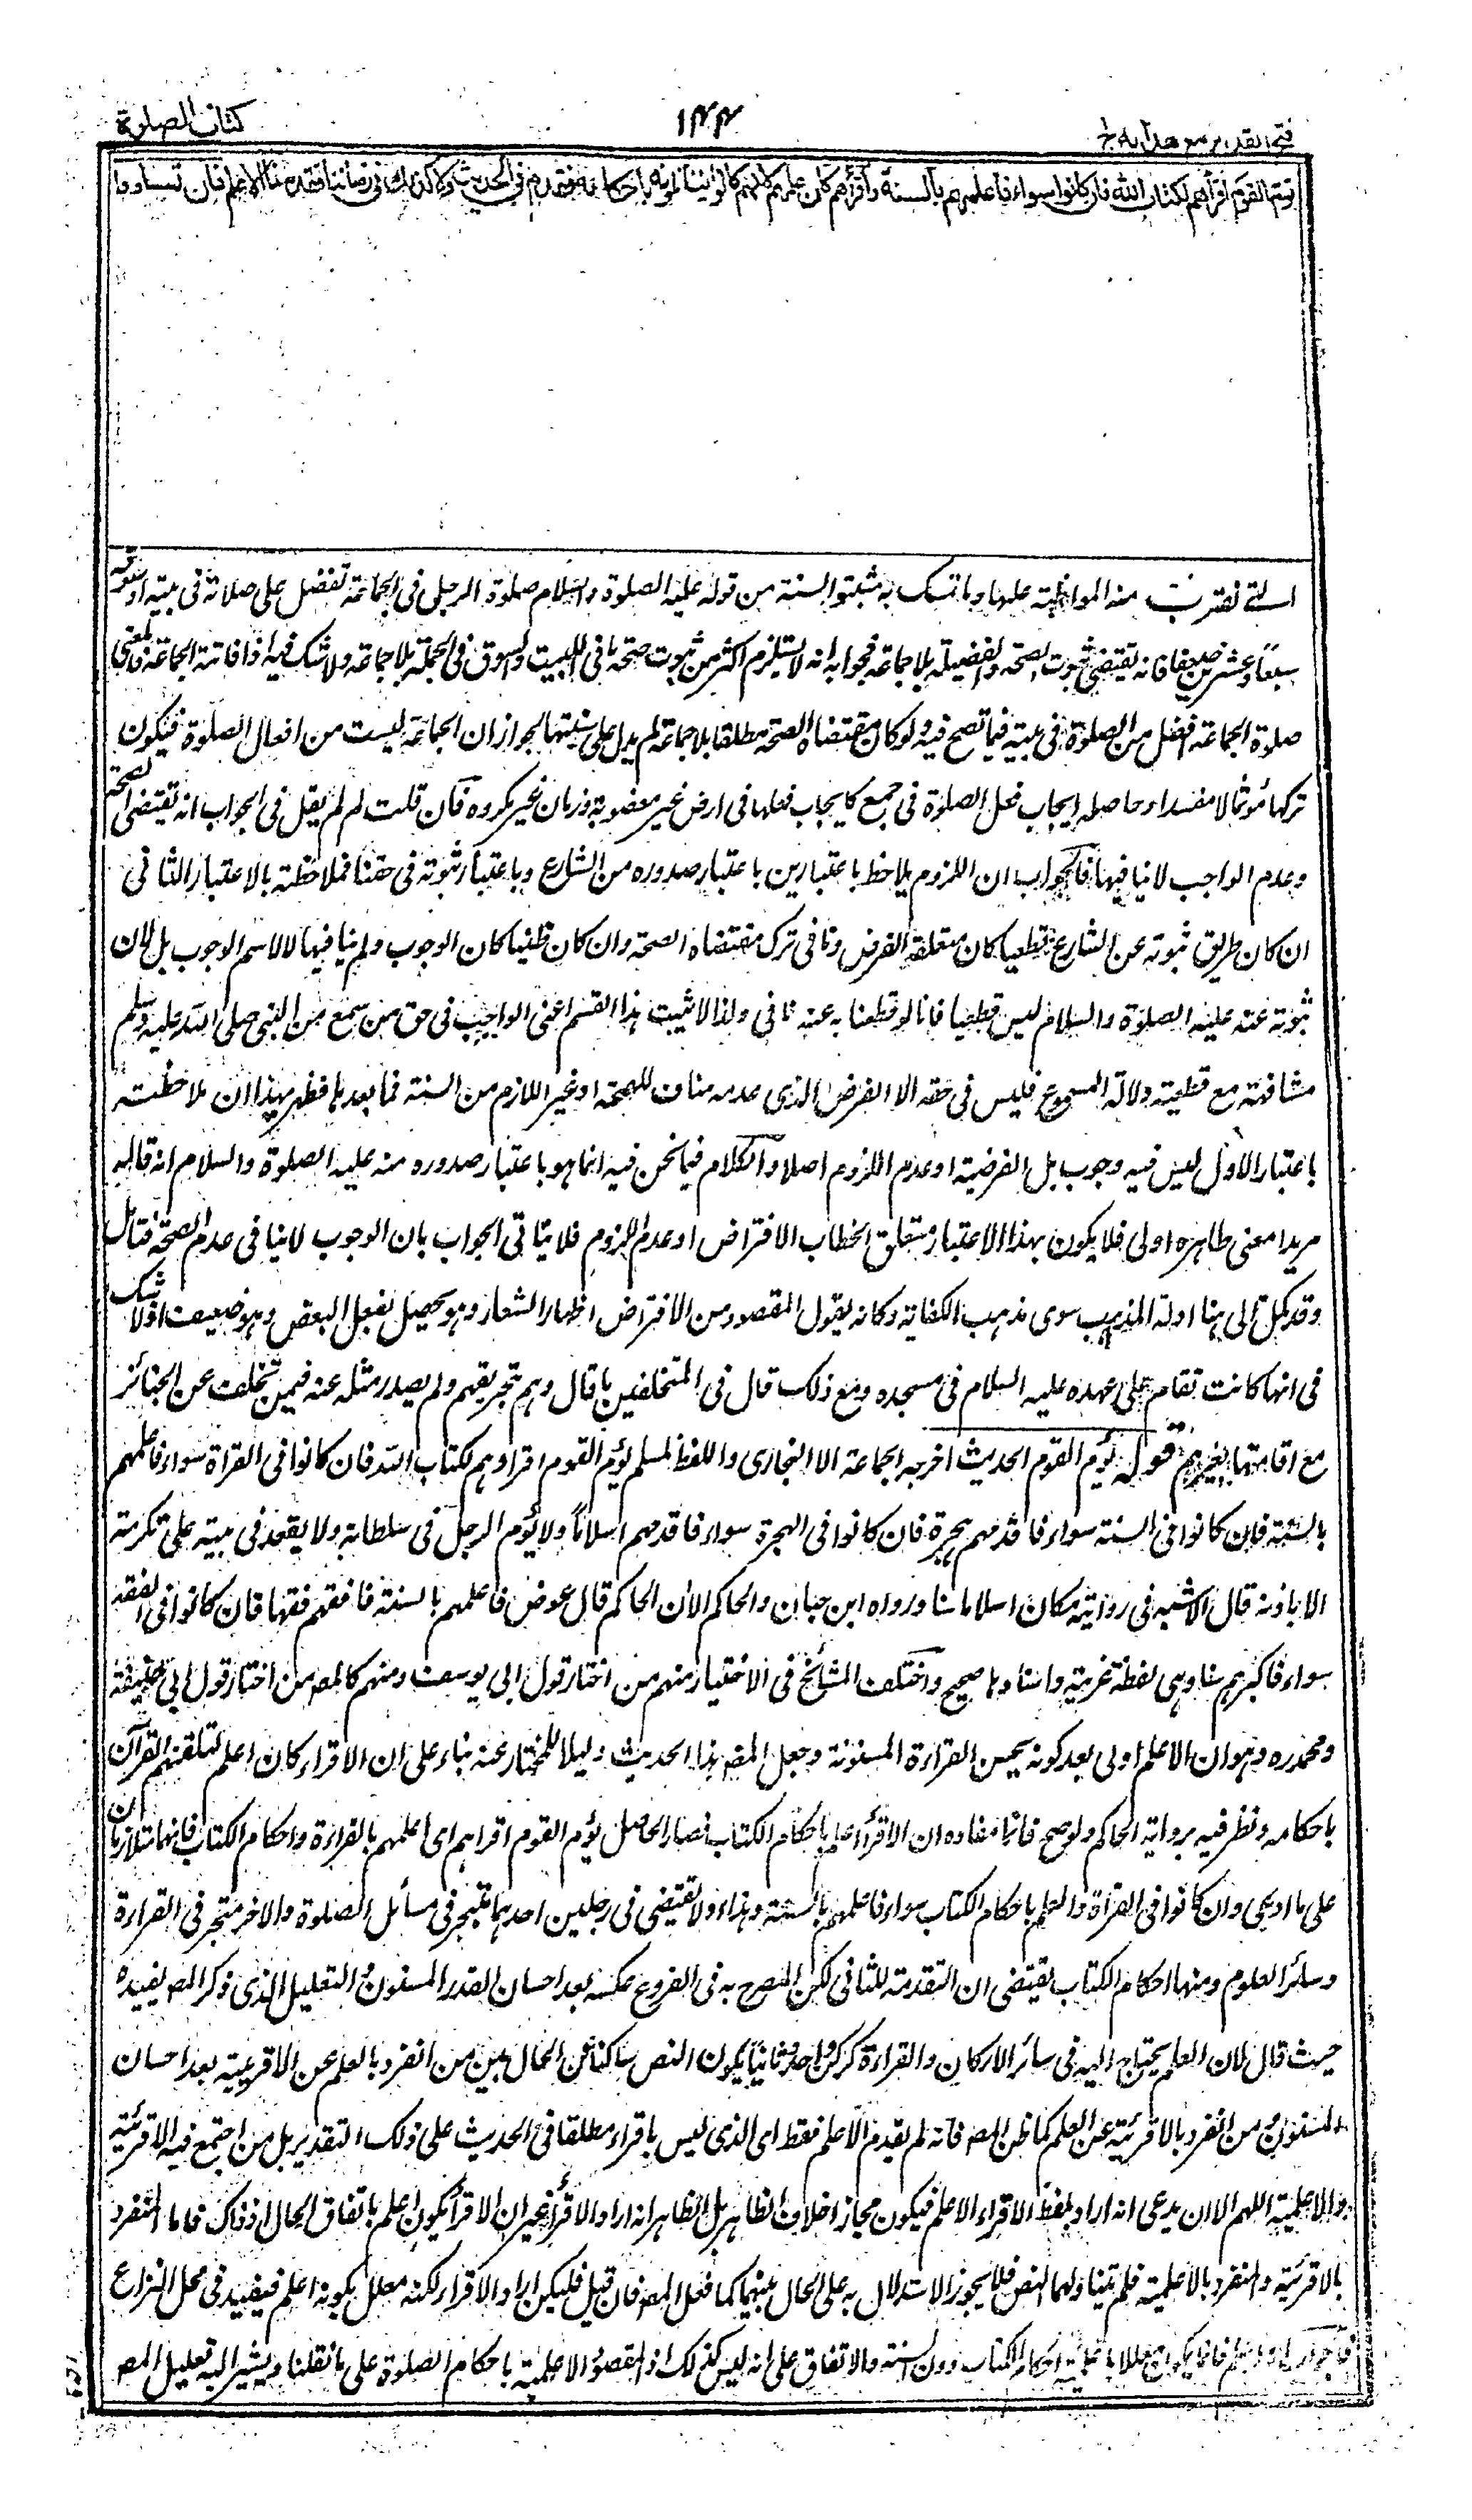 كتاب الصلوة
١٤٤
فتح القدير مع هدايه ج ١
يؤم القوم اقرأهم لكتاب الله فان كانوا سواء فاعلمهم بالسنة واقرأهم كان اعلمهم لانهم كانوا يتلقونه باحكامه فقدم في الحديث ولا كذلك في زماننا فقدمنا الاعلم فان تساووا
التي تقترن منه المواظبة عليها وما تمسك به مثبتو السنة من قوله عليه الصلوة والسلام صلوة الرجل في الجماعة تفضل على صلاته في بيته او سوقه
سبعا وعشرين ضعفا فانه يقتضى ثبوت الصحة والفضيلة بلا جماعة فجوابه انه لا يستلزم اكثر من ثبوت صحة ما في البيت والسوق في الجملة بلا جماعة ولا شك فيه اذا فاتته الجماعة فالمعنى
صلوة الجماعة افضل من الصلوة في بيته فيما تصح فيه ولو كان مقتضاه الصحة مطلقا بلا جماعة لم يدل على سنيتها لجواز ان الجماعة ليست من افعال الصلوة فيكون
تركها مؤثما لا مفسدا وحاصله ايجاب فعل الصلوة في جمع كايجاب فعلها في ارض غير مغصوبة وزمان غير مكروه فان قلت لم لم يقل في الجواب انه يقتضى الصحة
وعدم الواجب لا ينافيها فالجواب ان اللزوم يلاحظ باعتبارين باعتبار صدوره من الشارع وباعتبار ثبوته في حقنا فملاحظته بالاعتبار الثانى
ان كان طريق ثبوته عن الشارع قطعيا كان متعلقه الفرض ونافى ترك مقتضاه الصحة وان كان ظنيا كان الوجوب ولم ينافيها لا لاسم الوجوب بل لان
ثبوته عنه عليه الصلوة والسلام ليس قطعيا فانا لو قطعنا به عنه نافى ولذا لا يثبت هذا القسم اعنى الواجب في حق من سمع من النبى صلى الله عليه وسلم
مشافهة مع قطعية دلالة المسموع فليس في حقه الا الفرض الذى عدمه مناف للصحة او غير اللازم من السنة فما بعدها فظهر بهذا ان ملاحظته
باعتبار الاول ليس فيه وجوب بل الفرضية او عدم اللزوم اصلا والكلام فيما نحن فيه انما هو باعتبار صدوره منه عليه الصلوة والسلام انه قاله
مريدا معنى ظاهره اولى فلا يكون بهذا الاعتبار متعلق الخطاب الا افتراض او عدم اللزوم فلا يتاتى الجواب بان الوجوب لا ينافى عدم الصحة فتامل
وقد كمل الى هنا ادلة المذهب سوى مذهب الكفاية وكانه يقول المقصود من الافتراض اظهار الشعار وهو يحصل بفعل البعض وهو ضعيف اذ لا شك
فى انها كانت تقام على عهده عليه السلام فى مسجده ومع ذلك قال فى المتخلفين ما قال وهم بتحريقهم ولم يصدر مثله عنه فيمن تخلف عن الجنائز
مع اقامتها بغيرهم قوله يؤم القوم الحديث اخرجه الجماعة الا البخارى واللفظ لمسلم يؤم القوم اقراوهم لكتاب الله فان كانوا فى القراة سواء فاعلمهم
بالسنة فان كانوا فى السنة سواء فاقدمهم هجرة فان كانوا فى الهجرة سواء فاقدمهم اسلاما ولا يؤم الرجل فى سلطانه ولا يقعد فى بيته على تكرمته
الا باذنه قال الاشج فى روايته مكان اسلاما سنا ورواه ابن حبان والحاكم الا ان الحاكم قال عوض فاعلمهم بالسنة فافقههم فقها فان كانوا فى الفقه
سواء فاكبرهم سنا وهى لفظة غريبة واسنادها صحيح واختلف المشائخ فى الاختيار منهم من اختار قول ابى يوسف ومنهم كالمصر من اختار قول ابى حنيفة
ومحمد ره وهو ان الاعلم اولى بعد كونه يحسن القراءة المسنونة وجعل المصر هذا الحديث دليلا للمختار عنه بناء على ان الاقراء كان اعلم لتلقنهم القرآن
باحكامه ونظر فيه برواية الحاكم ولو صح فانما مفاده ان الاقرأ اعلم باحكام الكتاب فصار الحاصل يؤم القوم اقراهم اى اعلمهم بالقراءة واحكام الكتاب فانهما متلازمان
على ما ادعى وان كانوا فى القراة والعلم باحكام الكتاب سواء فاعلمهم بالسنة وهذا اولا يقتضى فى رجلين احدهما متبحر فى مسائل الصلوة والاخر متبحر فى القراءة
وسائر العلوم ومنها احكام الكتاب يقتضى ان التقدمة للثانى لكن المصرح به فى الفروع عكسه بعد احسان القدر المسنون والتعليل الذى ذكر المصر يفيده
حيث قال لان العلم يحتاج اليه فى سائر الاركان والقراءة لركن واحد وثانيا يكون النص ساكنا عن الحال بين من انفرد بالعلم عن الاقرئية بعد احسان
المسنون ومن انفرد بالاقرئية عن العلم كما ظن المصر فانه لم يقدم الاعلم فقط اى الذى ليس باقراء مطلقا فى الحديث على ذلك التقدير بل من اجتمع فيه الاقرئية
والاعلمية اللهم الا ان يدعى انه اراد بلفظ الاقراء الاعلم فيكون مجازا خلاف الظاهر بل الظاهر انه اراد الاقرأ غير ان الاقرأ يكون اعلم باتفاق الحال اذ ذاك فاما المنفرد
بالاقرئية والمنفرد بالاعلمية فلم يتناولهما النص فلا يجوز الاستدلال به على الحال بينهما كما فعل المصر فان قيل فليكن اراد الاقراء لكنه معلل بكونه اعلم فيفيد فى محل النزاع
فانما يكون معللا باعلمية احكام الكتاب دون السنة والاتفاق على انه ليس كذلك اذ المقصود الاعلمية باحكام الصلوة على ما نقلنا ويشير اليه تعليل المصر